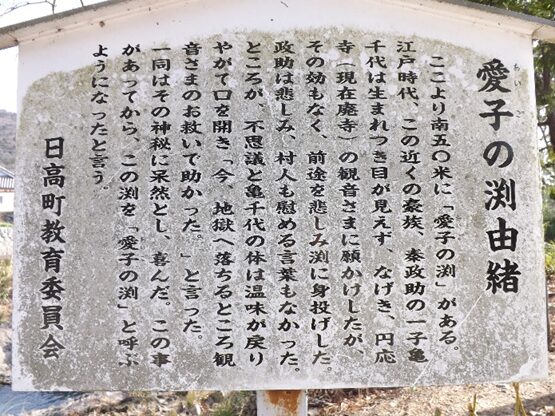 愛子の渕由緒
あいご
ここより南五〇米に「愛子の渕」がある。
江戸時代、この近くの豪族、秦政助の一子亀
千代は生まれつき目が見えず、なげき、円応
寺（現在廃寺）の観音さまに願かけしたが、
その効もなく、前途を悲しみ渕に身投げした。
政助は悲しみ、村人も慰める言葉もなかった。
ところが、不思議と亀千代の体は温味が戻り
やがて口を開き「今、地獄へ落ちるところ観
音さまのお救いで助かった。」と言った。
一同はその神秘に呆然とし、喜んだ。この事
があってから、この渕を「愛子の渕」と呼ぶ
ようになったと言う。
日高町教育委員会